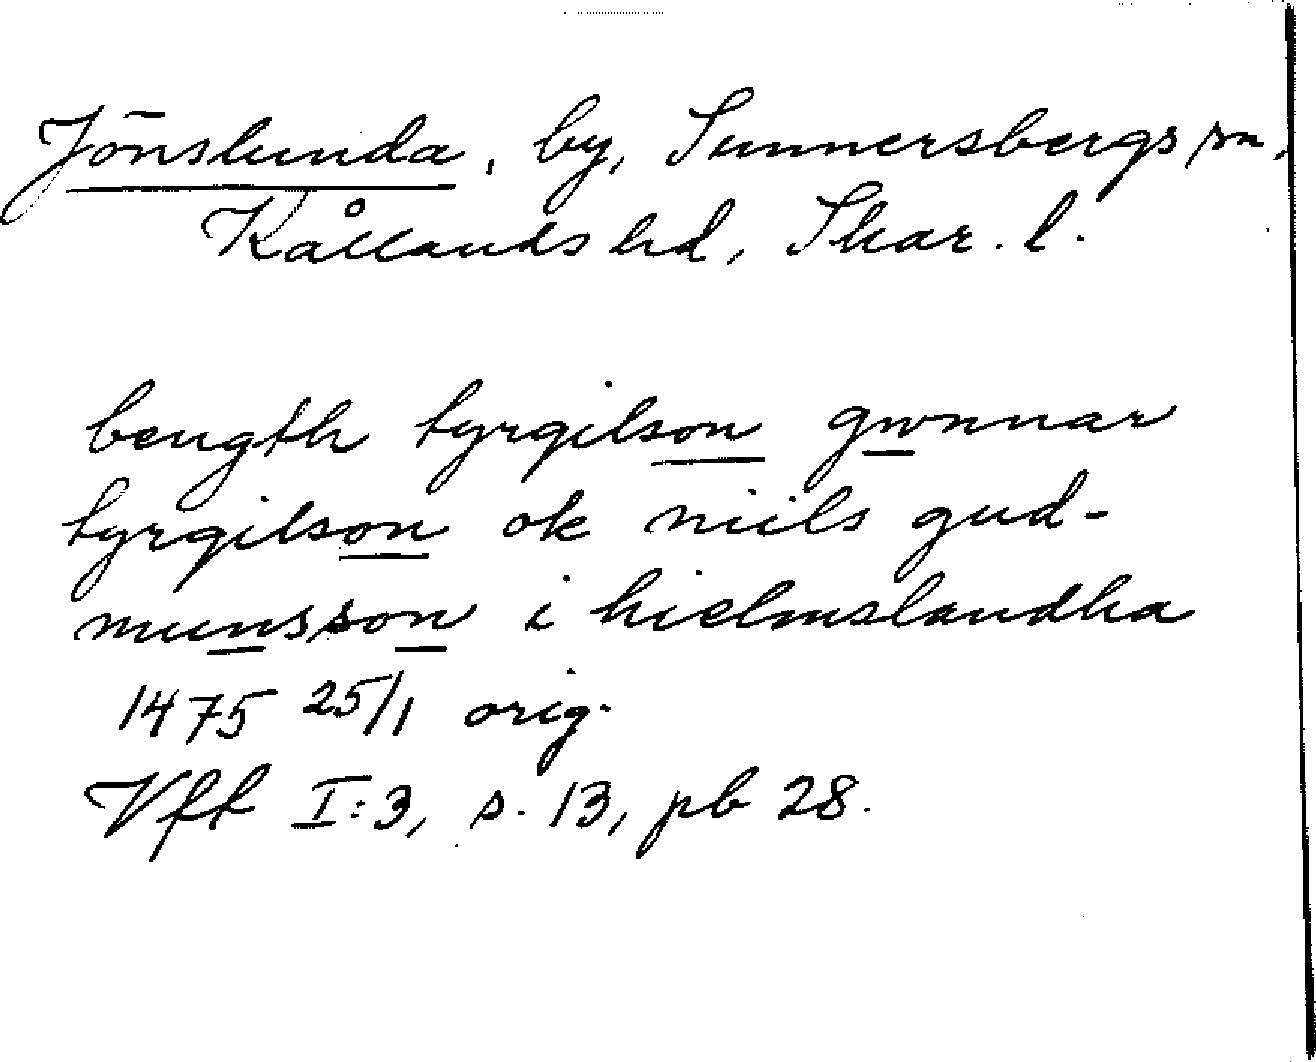 Jönslunda, by, Sunnersbergs sn,
Kållands hd, Skar. l.
bength tyrgilson gwnnar
tyrgilson ok niils gud-
munsson i hielmslandha
1475 25/1 orig.
Vft I:3, s. 13, pb 28.